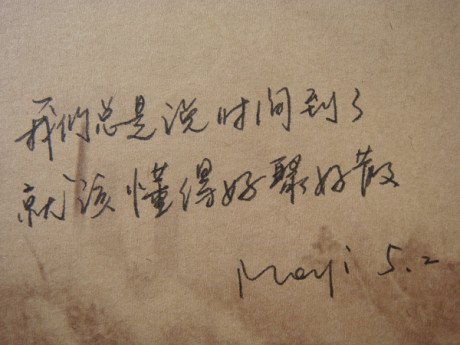 我们总是说时间到了
就该懂得好聚好散
Mayi 5.2